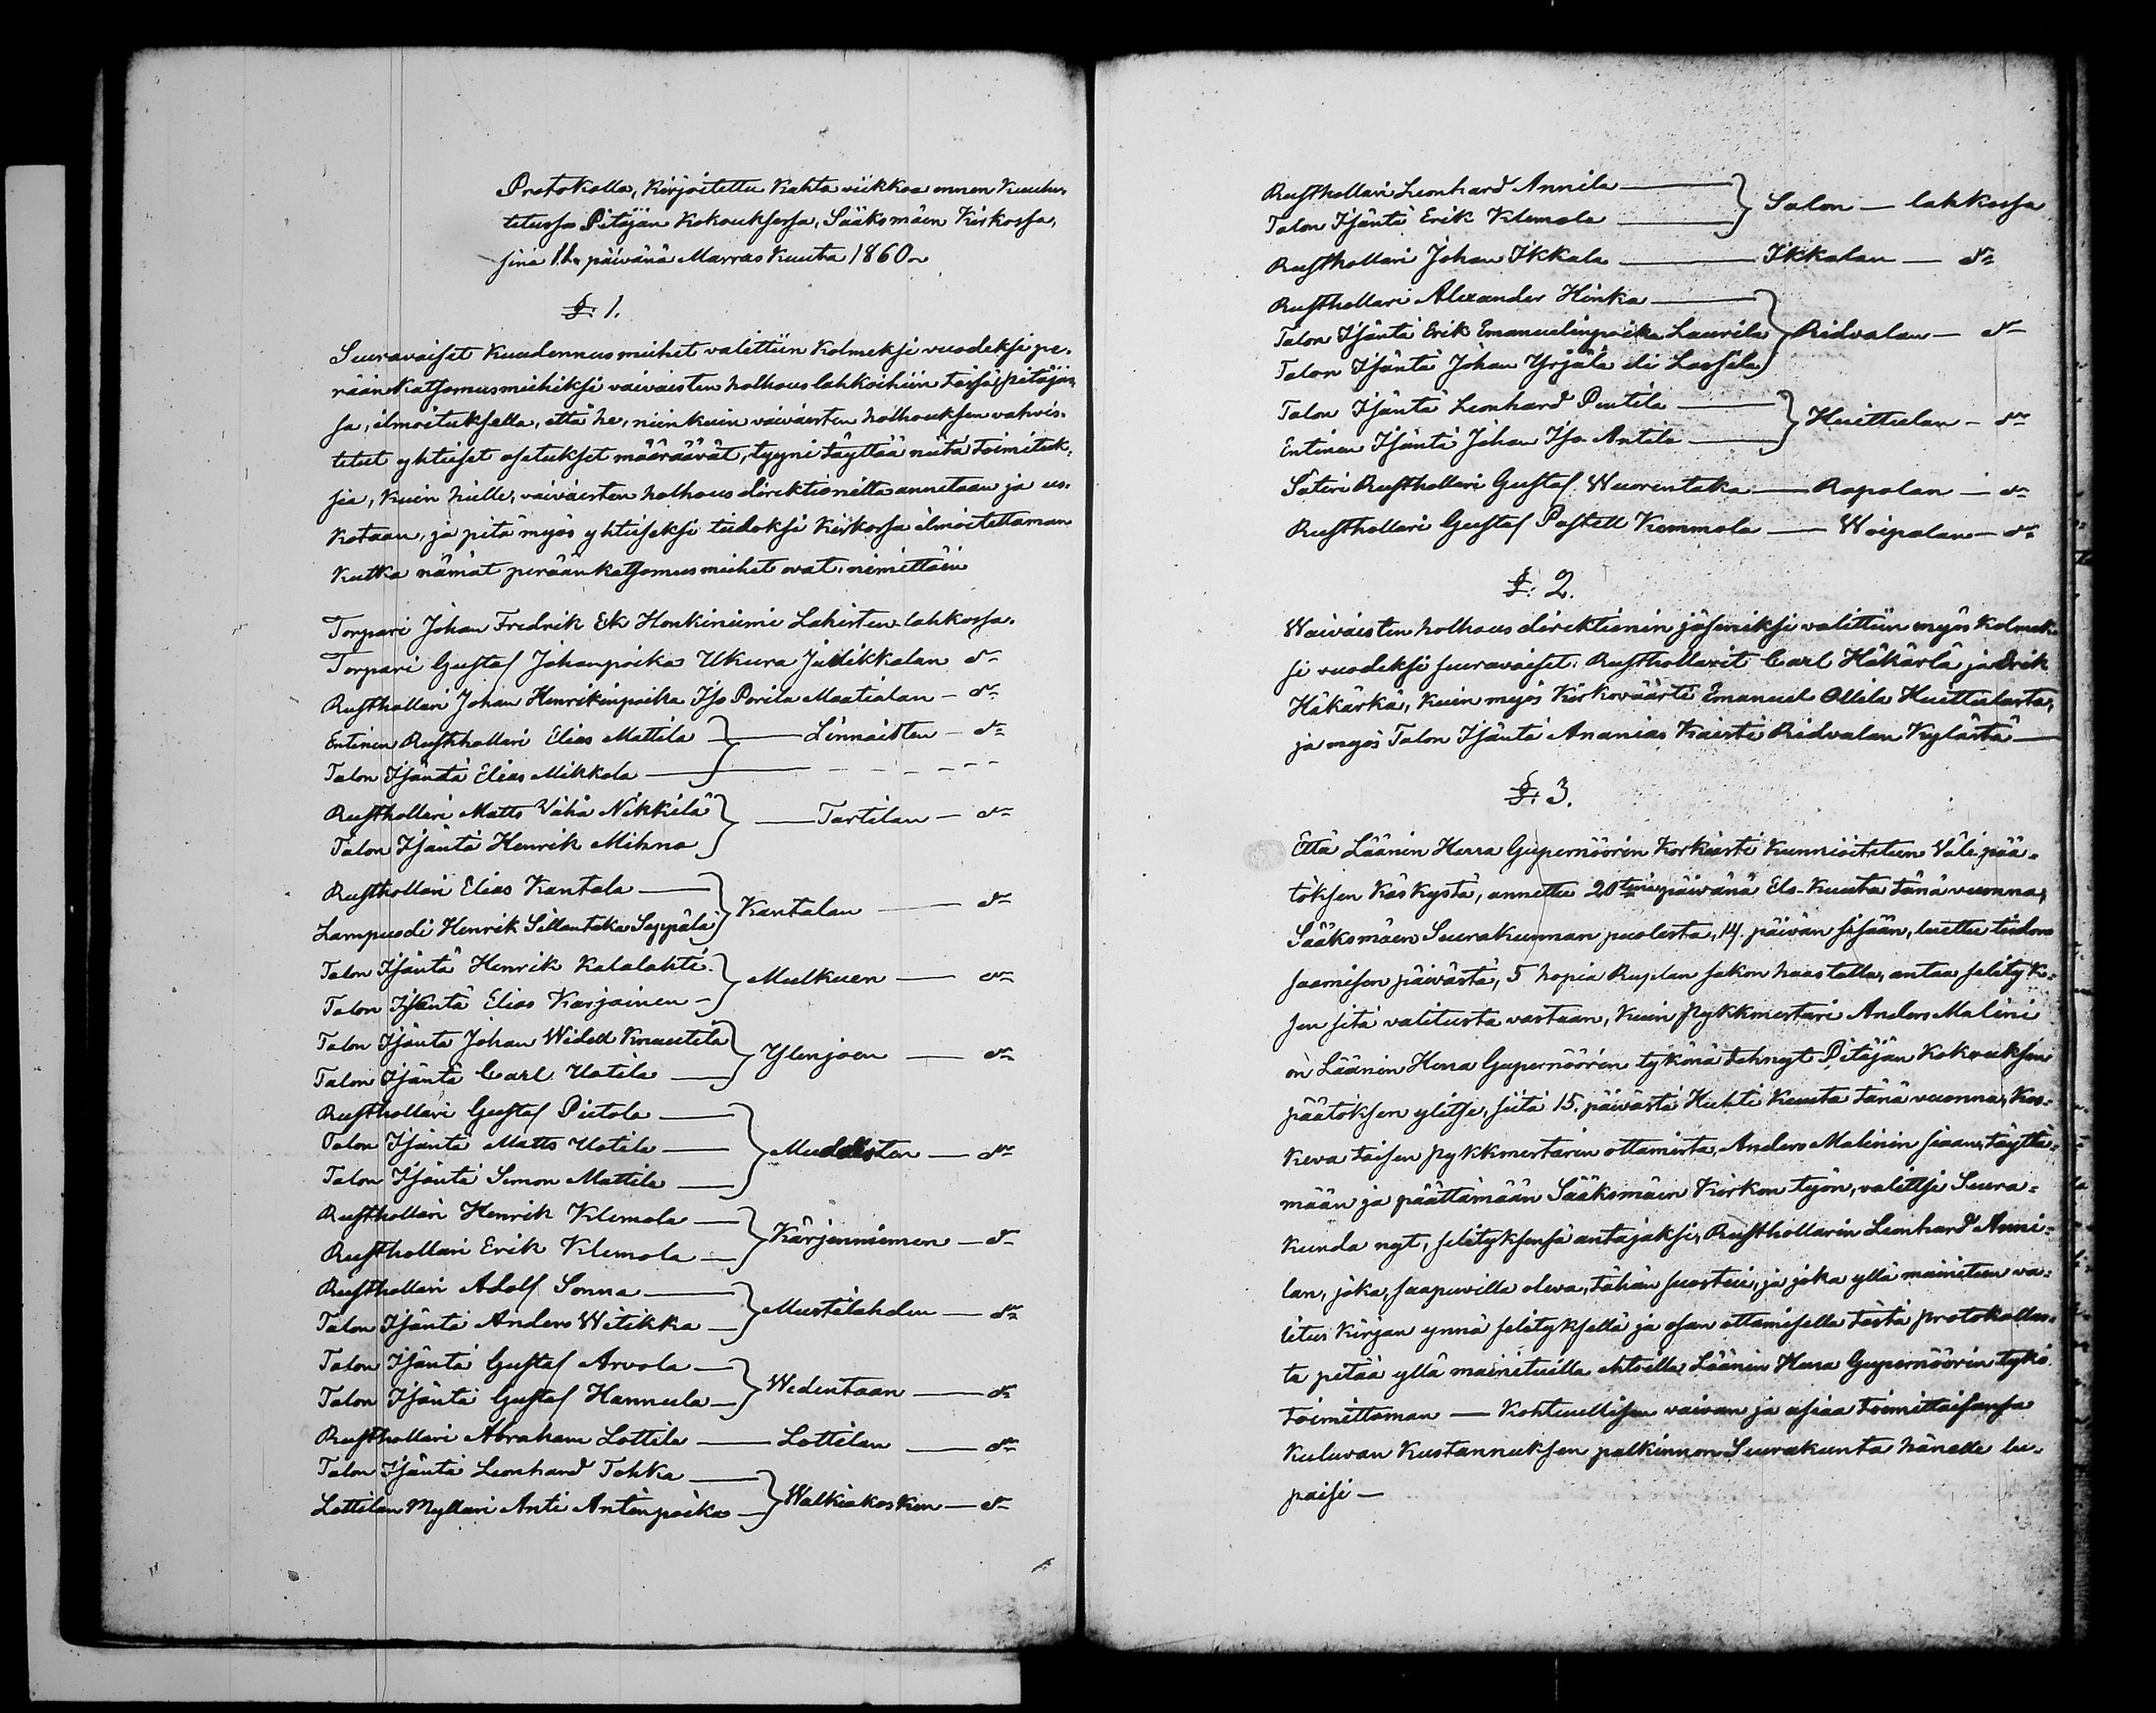 Protokolla, Kirjoitettu Kahta viikkoa ennen Kuulu-
tetussa Pitäjän Kokouksessa, Sääksmäen Kirkossa,
sinä 11. päivänä Marras Kuuta 1860.
§. 1.
Seuravaiset Kuudennusmiehet valittiin Kolmeksi vuodeksi pe-
räänkatsomusmiehiksi vaivaisten holhous lahkoihin tässä pitäjäs-
sä, ilmoituksella, että he, niinkuin vaivaisten holhouksen vahvis-
tetut yhteiset asetukset määräävät, tyyni täyttää niitä toimituk-
sia, Kuin heille, vaivaisten holhous direktionilta annetaan ja us-
kotaan, ja pitä myös yhteiseksi tiedoksi Kirkossa ilmoitettaman
Kutka nämät peräänkatsomusmiehet ovat, nimittäin
Torpari Johan Fredrik Ek Honkiniemi Lahisten lahkossa.
Torpari Gustaf Johanpoika Ukura Jutikkalan d:o
Rusthollari Johan Henrikinpoika Iso Porila Maatialan – d:o
Entinen Rusthollari Elias Mattila — Linnaisten – d:o
Talon Isäntä Elias Mikkola — – – – – – –
Rusthollari Matts Vähä Nikkilä — Tartilan – d:o
Talon Isäntä Henrik Mikna
Rusthollari Elias Kantala — Kantalan — d:o
Lampuodi Henrik Sillantaka Seppälä
Talon Isäntä Henrik Kalalahti — Melkuen — d:o
Talon Isäntä Elias Karjainen –
Talon Isäntä Johan Widell Knuutila — Ylenjoen — d:o
Talon Isäntä Carl Uotila —
Rusthollari Gustaf Pietola —
Talon Isäntä Matts Uotila — Muddisten — d:o
Talon Isäntä Simon Mattila —
Rusthollari Henrik Klemola — Kärjenniemen — d:o
Rusthollari Erik Klemola —
Rusthollari Adolf Sonna — Mustilahden — d:o
Talon Isäntä Anders Witikka —
Talon Isäntä Gustaf Arvola — Wedentaan — d:o
Talon Isäntä Gustaf Hannula —
Rusthollari Abraham Lottila — Lottilan — d:o
Talon Isäntä Leonhard Tohka — Walkiakosken — d:o
Lottilan Myllari Anti Antinpoika —
Rusthollari Leonhard Annila — Salon — lahkossa
Talon Isäntä Erik Klemola —
Rusthollari Johan Ikkala — Ikkalan — d:o
Rusthollari Alexander Hinka —
Talon Isäntä Erik Emanuelinpoika Laurila Ridvalan — d:o
Talon Isäntä Johan Yrjälä eli Lassila
Talon Isäntä Leonhard Pentila — Huittulan – d:o
Entinen Isäntä Johan Iso Antila —
Säteri Rusthollari Gustaf Wuorentaka — Rapolan — d:o
Rusthollari Gustaf Pastell Kemmola — Woipalan — d:o
§. 2.
Waivaisten holhous direktionin jäseniksi valittiin myös Kolmek-
si vuodeksi seuravaiset: Rusthollarit Carl Häkärlä ja Erik
Häkärkä, Kuin myös Kirkovärti Emanuel Ollila Huittulasta,
ja myös Talon Isäntä Ananias Kaisti Ridvalan Kylästä —
§. 3.
Että Läänin Herra Gupernöörin Korkiasti Kunnioitetun Väli pää-
töksen Käskystä, annettu 20tenä päivänä Elo-Kuuta tänä vuonna,
Sääksmäen Seurakunnan puolesta, 14. päivän sisään, luettu tiedon
saamisen päivästä, 5 hopia Ruplan sakon haastolla, antaa selityk-
sen sitä valitusta vastaan, Kuin Pykkmestari Anders Malini
on Läänin Herra Gupernöörin tykönä tehnyt Pitäjän Kokouksen
päätöksen ylitse, siitä 15. päivästä Huhti Kuuta tänä vuonna, Kos-
keva toisen Pykkmestarin ottamista, Anders Malinin siaan, täyttä-
mään ja päättämään Sääksmäen Kirkon työn, valittsi Seura-
kunda nyt, selityksensä antajaksi, Rusthollarin Leonhard Anni-
lan, joka, saapuvilla oleva, tähän suostui, ja joka yllä mainitun va-
litus Kirjan ynnä selityksellä ja osan ottamisella tästä protokollas-
ta pitää yllä mainituilla ehtoilla Läänin Herra Gupernöörin tykö
toimittaman — Kohtuullisen vaivan ja asiaa toimittaisansa
Kuluvan Kustannuksen palkinnon Seurakunta hänelle lu-
paisi —